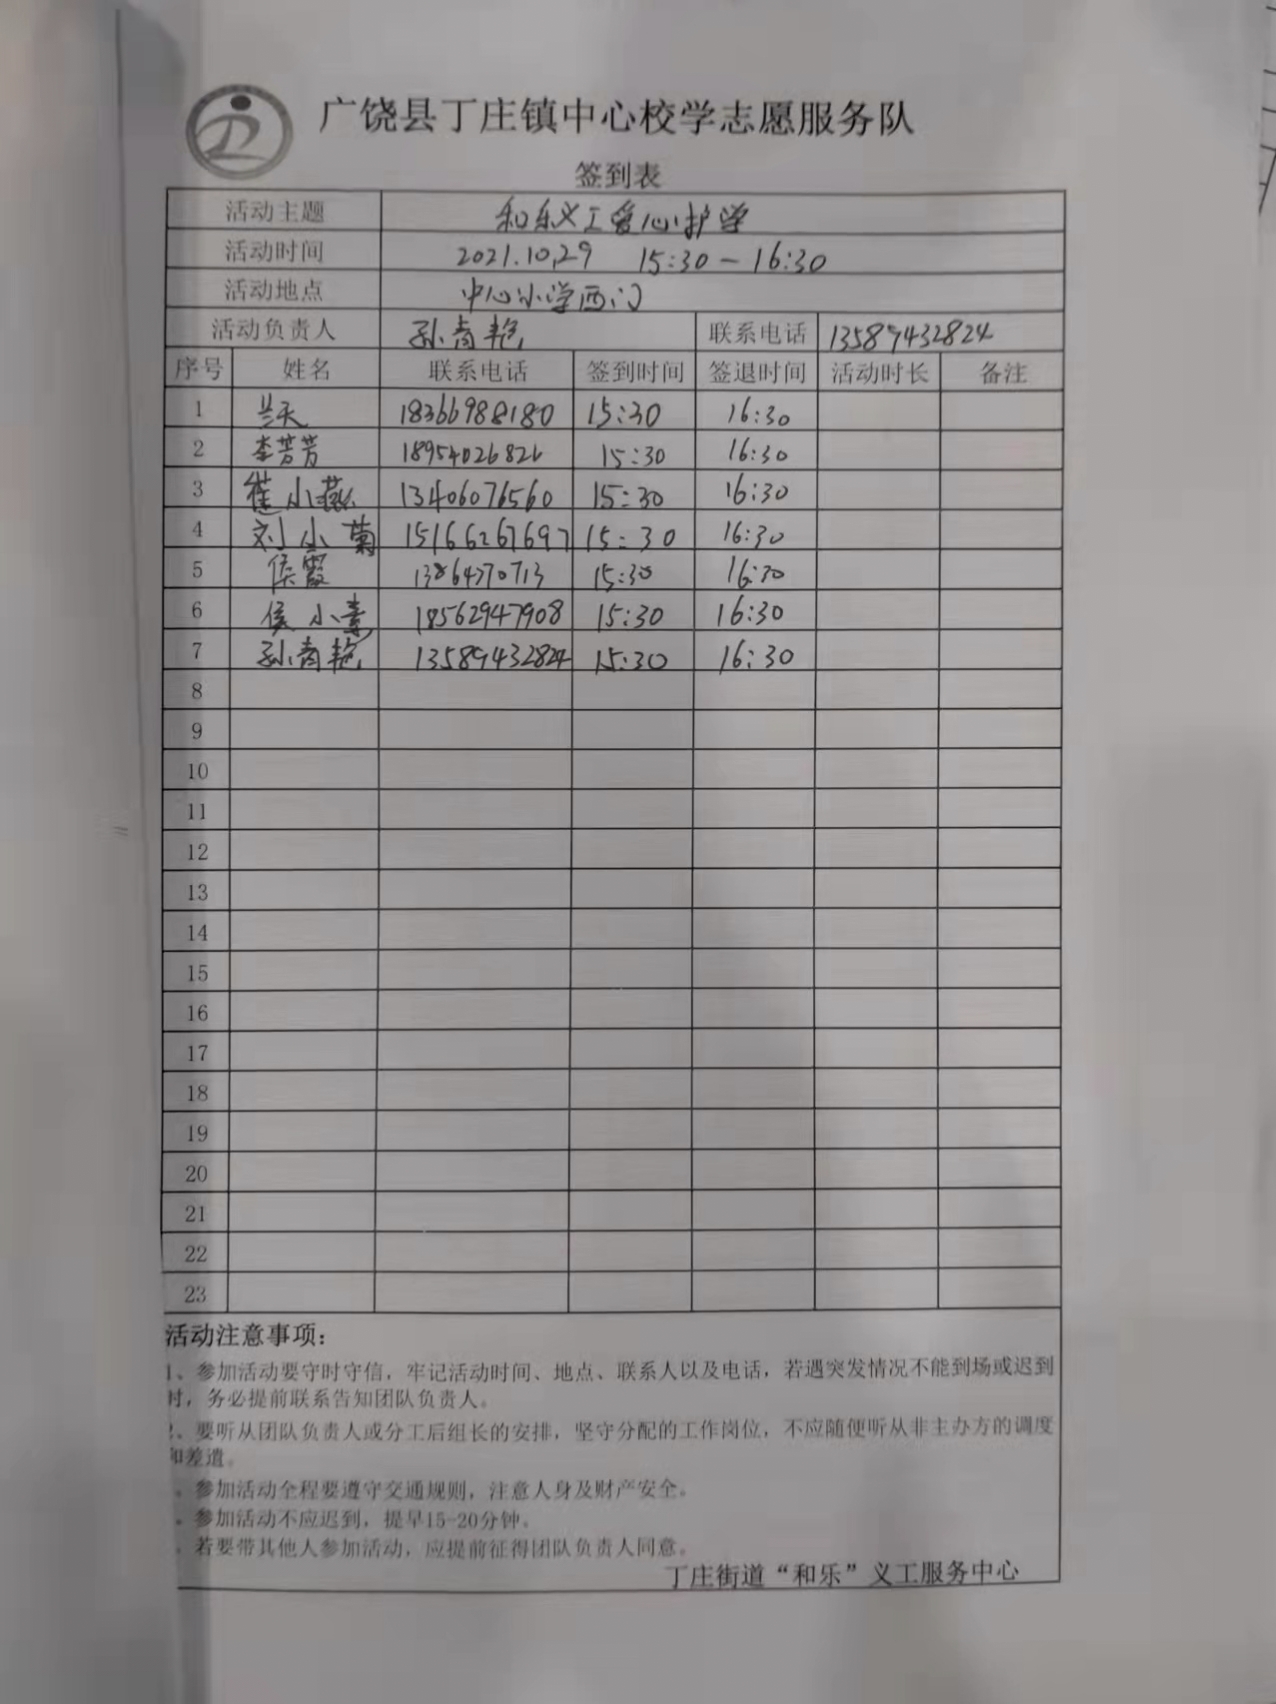 广饶县丁庄镇中心校学志愿服务队
签到表
活动主题 和乐义工爱心护学
活动时间 2021.10.29 15:30-16:30
活动地点 中心小学西门
活动负责人 孙青艳 联系电话 13589432824
序号 姓名 联系电话 签到时间 签退时间 活动时长 备注
1 兰天 18366988180 15:30 16:30
2 李芳芳 18954026826 15:30 16:30
3 崔小燕 13406076560 15:30 16:30
4 刘小菊 15166267697 15:30 16:30
5 侯霞 15:30 16:30
6 侯小青 18562947908 15:30 16:30
7 孙青艳 13589432824 15:30 16:30
8
9
10
11
12
13
14
15
16
17
18
19
20
21
22
23
活动注意事项:
1、参加活动要守时守信，牢记活动时间、地点、联系人以及电话，若遇突发情况不能到场或迟到
时，务必提前联系告知团队负责人。
2、要听从团队负责人或分工后组长的安排，坚守分配的工作岗位，不应随便听从非主办方的调度
和差遣。
、参加活动全程要遵守交通规则，注意人身及财产安全。
、参加活动不应迟到，提早15-20分钟。
、若要带其他人参加活动，应提前征得团队负责人同意。
丁庄街道“和乐”义工服务中心